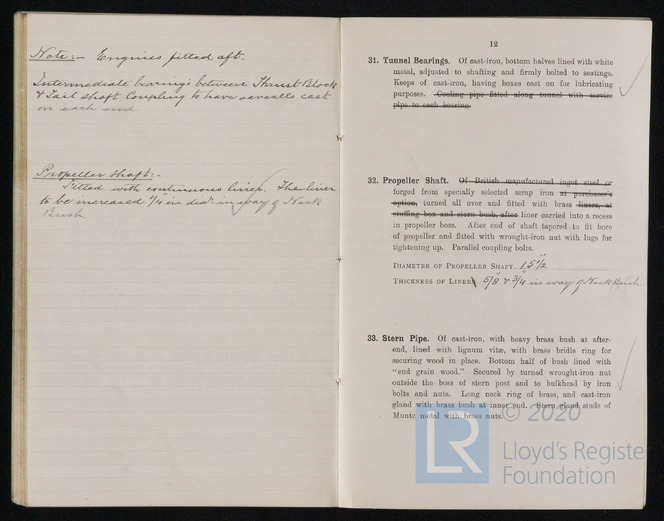 Note:- Engines fitted aft.
Intermediate bearings between Thrust Block
& Tail shaft Coupling to have cast
on each end
Propeller Shaft:-
Fitted with continuous liner. The liner
to be increased 1/4" in diar in way of Neck
Bush
12
31. Tunnel Bearings. Of cast-iron, bottom halves lined with white
metal, adjusted to shafting and firmly bolted to seatings.
Keeps of cast-iron, having boxes cast on for lubricating
purposes. Cooling pipe fitted along tunnel with service
pipe to each bearing.
32. Propeller Shaft. Of British manufactured ingot steel or
forged from specially selected scrap iron at purchaser's
option, turned all over and fitted with brass liners, at
stuffing box and stern bush, after liner carried into a recess
in propeller boss. After end of shaft tapered to fit bore
of propeller and fitted with wrought-iron nut with lugs for
tightening up. Parallel coupling bolts.
Diameter of Propeller Shaft 15 1/2"
Thickness of Liner 5/8" & 3/4" in way of Neck Bush
33. Stern Pipe. Of cast-iron, with heavy brass bush at after-
end, lined with lignum vitæ, with brass bridle ring for
securing wood in place. Bottom half of bush lined with
"end grain wood." Secured by turned wrought-iron nut
outside the boss of stern post and to bulkhead by iron
bolts and nuts. Long neck ring of brass, and cast-iron
gland with brass bush at inner end. Stern gland studs of
Muntz metal with brass nuts.
© 2020
LR
Lloyd's Register
Foundation